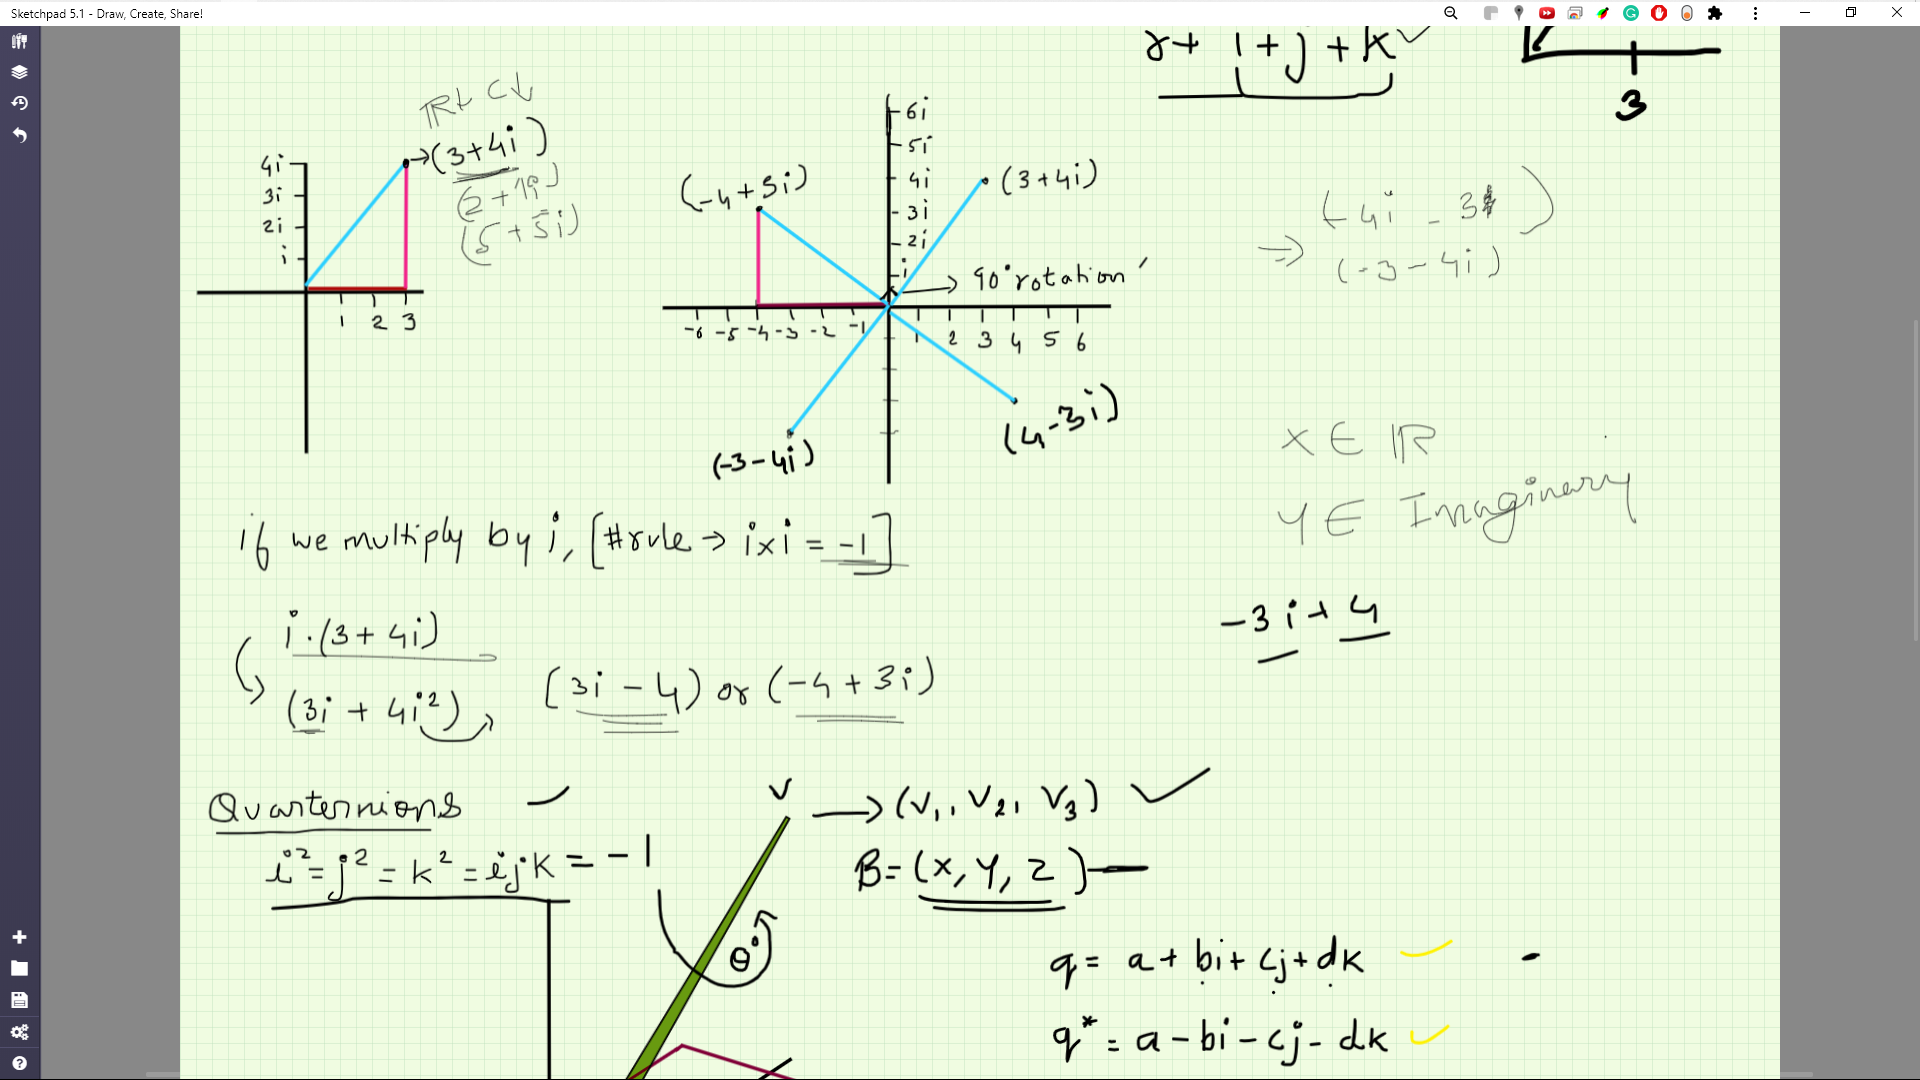 Sketchpad 5.1 - Draw, Create, Share!
r + i + j + k
3
R↓ C↓
→(3+4i)
(2+1i)
(5+5i)
4i
3i
2i
i
1 2 3
6i
5i
4i
3i
2i
i
(-4+3i)
(3+4i)
→ 90° rotation
-6 -5 -4 -3 -2 -1 1 2 3 4 5 6
(-3-4i)
(4-3i)
(4i - 3
⇒ (-3-4i)
x ∈ R
y ∈ Imaginary
if we multiply by i, [#rule → i×i = -1]
-3i + 4
i.(3+4i)
(3i + 4i²)
[3i - 4) or (-4+3i)
Quarternions
i² = j² = k² = ijk = -1
V → (V1, V2, V3)
B = (x, y, z)
θ°
q = a + bi + cj + dk
q* = a - bi - cj - dk